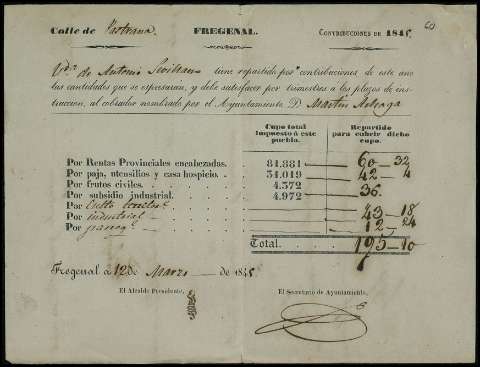 60
Calle de Pastrana. FREGENAL. CONTRIBUCIONES DE 1845
Vda. de Antonio Sevillano tiene repartido por contribuciones de este año
las cantidades que se espresarán, y debe satisfacer por trimestres á los plazos de ins-
truccion, al cobrador nombrado por el Ayuntamiento D. Martin
Cupo total impuesto á este puebla. Repartido para cubrir dicho cupo.
Por Rentas Provinciales encabezadas. 81.881 60 32
Por paja, utensilios y casa hospicio. 31.019 42 4
Por frutos civiles. 4.372 36
Por subsidio industrial. 4.972
Por Culto 43 18
Por industrial 12 24
Por
Total. 195 10
Fregenal á 12 de Marzo de 1845
El Alcalde Presidente. El Secretario de Ayuntamiento.